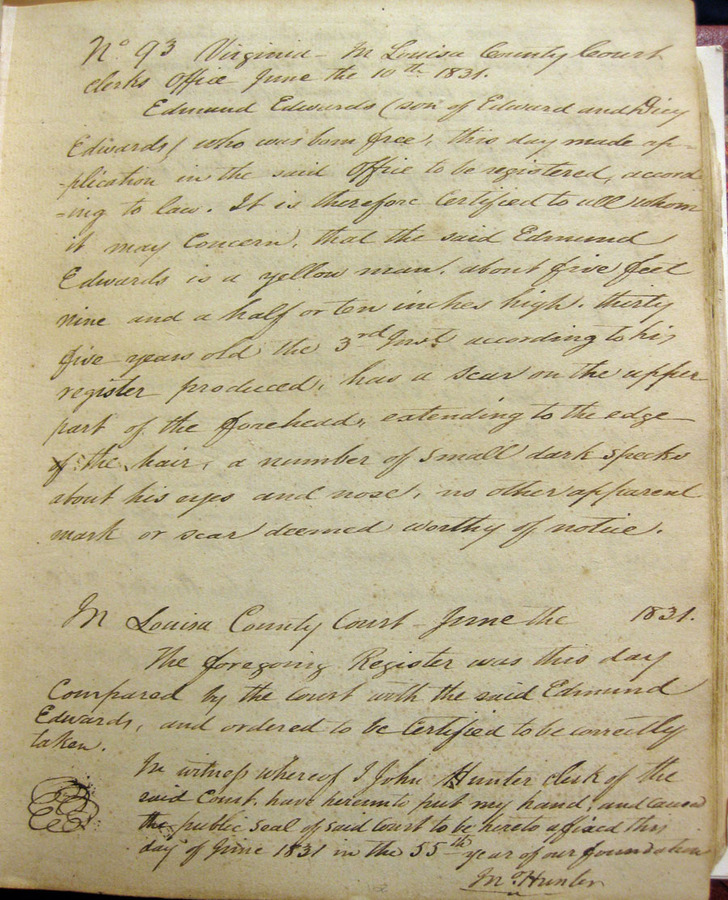 No 93 Virginia - In Louisa County Court
clerks Office June the 10th 1831.
Edmund Edwards (son of Edward and Dicy
Edwards) who was born free, this day made ap-
-plication in the said Office to be registered, accord
-ing to law. It is therefore Certified to all whom
it may Concern, that the said Edmund
Edwards is a yellow man, about five feet
nine and a half or ten inches high. thirty
five years old the 3rd Inst according to his
register produced, has a scar on the upper
part of the forehead, extending to the edge
of the hair, a number of small dark specks
about his eyes and nose, no other apparent
mark or scar deemed worthy of notice.
In Louisa County Court - June the 1831.
The foregoing Register was this day
Compared by the Court with the said Edmund
Edwards, and ordered to be Certified to be correctly
taken.
In witness whereof I John Hunter clerk of the
said Court, have hereunto put my hand, and caused
the public seal of said Court to be hereto affixed this
day of June 1831 in the 55th year of our foundation
Jno Hunter